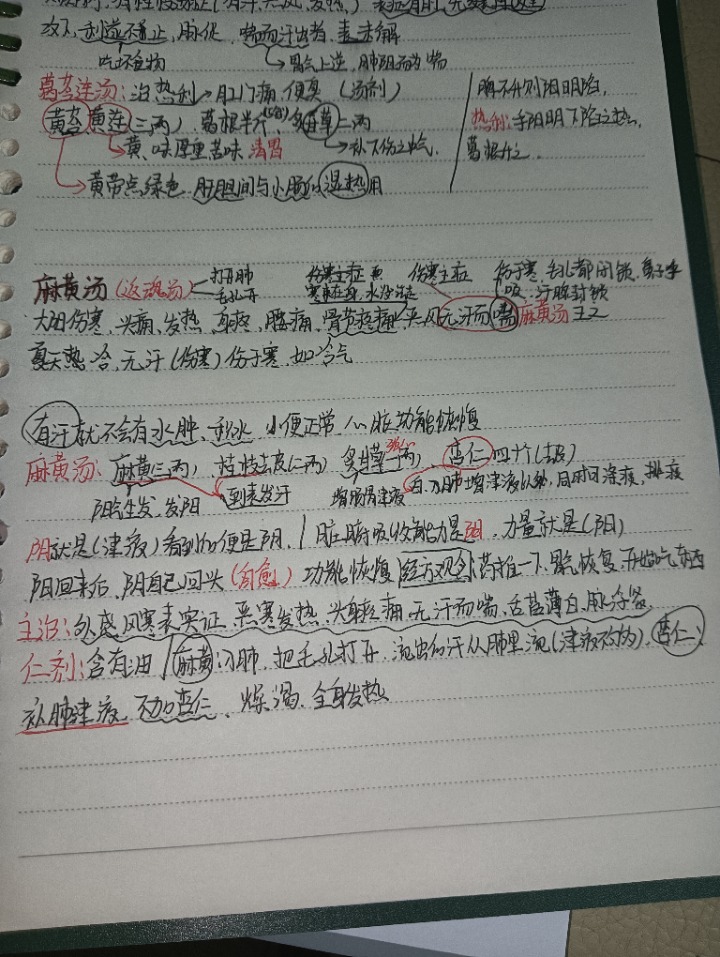 故下,利遂不止,脉促,喘而汗出者,表未解
吃坏食物
胃气上逆,肺阳
葛芩连汤:治热利→肛门痛,便臭(汤剂)
黄芩黄连(三两),葛根半斤,炙甘草二两
→黄、味厚重苦味,清胃
→补下伤之中气
→黄带点绿色,肝胆间与小肠似湿热用
热利:手阳明下陷之热,
葛根升之.
麻黄汤(返魂汤)
打开肺
毛孔开
伤寒主症
伤于寒,毛孔都闭锁,鼻子手
吸,汗腺封锁
太阳伤寒,头痛、发热、身疼,腰痛,骨节疼痛,恶风无汗而喘麻黄汤主之
夏天热,冷,无汗(伤寒)伤于寒,如冷气
有汗就不会有水肿,利水,小便正常,心脏功能恢复
麻黄汤:麻黄(三两)桂枝去皮(二两)炙甘草一两,杏仁四十个(打)
阳气生发,发阳
到表发汗
增肠胃津液
白,入肺增津液以外,同时可涤痰,排痰
阴就是(津液)看到的便是阴,/脏腑吸收能力是阳,力量就是(阳)
阳回来后,阴自己回头(自愈)功能恢复 经方观外药推一下,胃气恢复,开始吃东西
主治:外感风寒表实证,恶寒发热,头身疼痛,无汗而喘,舌苔薄白,脉浮紧.
仁剂:含有油/麻黄入肺,把毛孔打开,流出的汗从肺里流(津液不够),杏仁:
补肺津液,不加杏仁,燥渴,全身发热